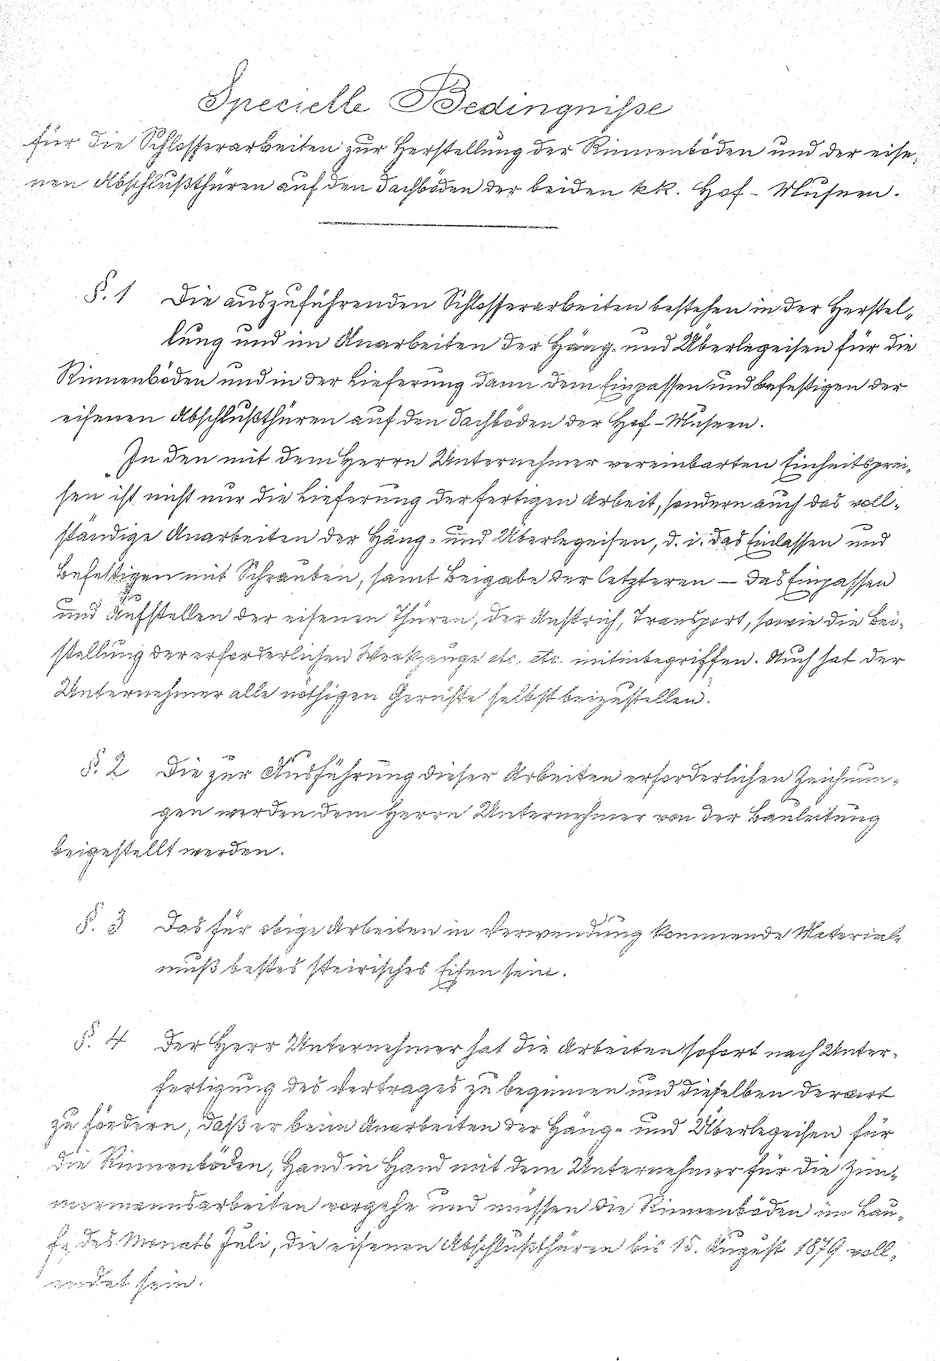 Specielle Bedingniße
für die Schlosserarbeiten zur Herstellung der Rinnenböden und der eise-
nen Abschlußthüren auf den Dachböden der beiden kk. Hof-Museen.
§. 1 Die auszuführenden Schlosserarbeiten bestehen in der Herstel-
lung und im Anarbeiten der Häng- und Überlegeisen für die
Rinnenböden und in der Lieferung dann dem Einpassen und Befestigen der
eisenen Abschlußthüren auf den Dachböden der Hof-Museen.
In den mit dem Herrn Unternehmer vereinbarten Einheitsprei-
sen ist nicht nur die Lieferung der fertigen Arbeit, sondern auch das voll-
ständige Anarbeiten der Häng- und Überlegeisen, d. i. das Einlassen und
Befestigen mit Schrauben, samt Beigabe der letzteren — das Einpassen
und Aufstellen der eisenen Thüren, der Anstrich, Transport, sowie die Bei-
stellung der erforderlichen Werkzeuge etc. etc. mitinbegriffen. Auch hat der
Unternehmer alle nöthigen Gerüste selbst beizustellen.
§. 2 Die zur Ausführung dieser Arbeiten erforderlichen Zeichnun-
gen werden dem Herrn Unternehmer von der Bauleitung
beigestellt werden.
§. 3 Das für obige Arbeiten in Verwendung kommende Material
muß bestes steirisches Eisen sein.
§. 4 Der Herr Unternehmer hat die Arbeiten sofort nach Unter-
fertigung des Vertrages zu beginnen und dieselben derart
zu fördern, daß er beim Anarbeiten der Häng- und Überlegeisen für
die Rinnenböden, Hand in Hand mit dem Unternehmer für die Zim-
mermannsarbeiten vorgehe und müssen die Rinnenböden im Lau-
fe des Monats Juli, die eisenen Abschlußthüren bis 15. August 1879 voll-
endet sein.